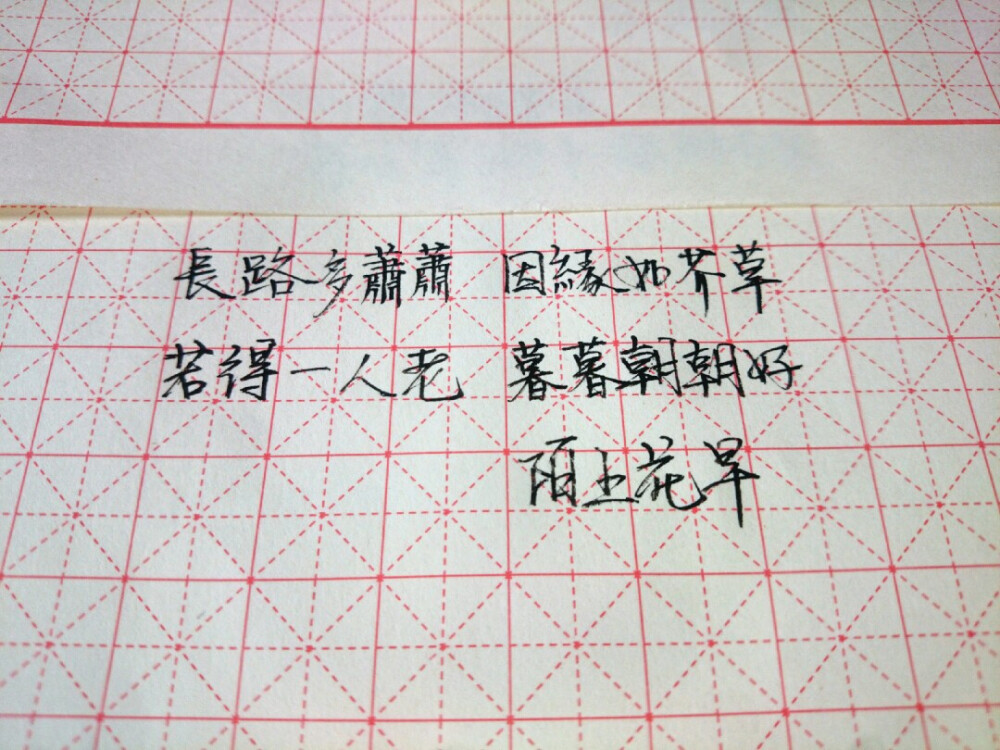 長路多蕭蕭 因緣如芥草
若得一人老 暮暮朝朝好
陌上花早